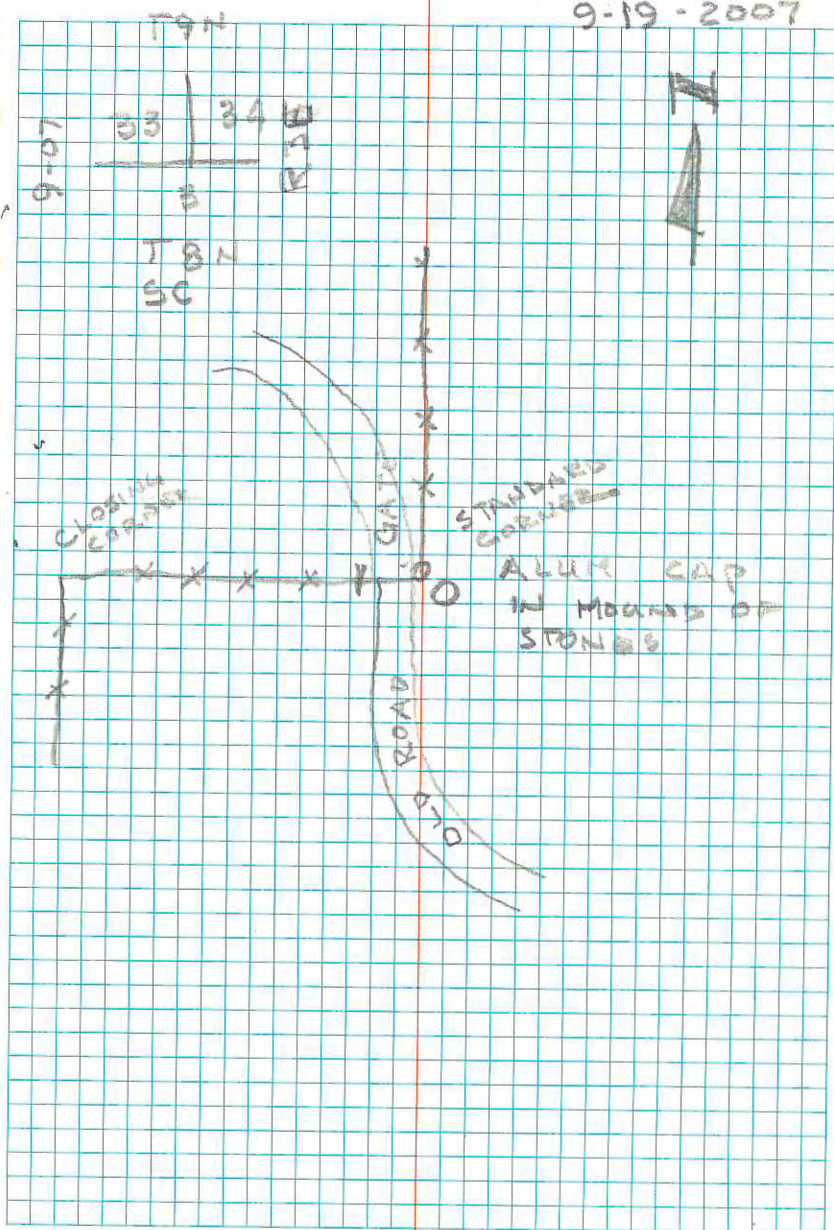 9-19-2007
T9N
33 34
9-07
3
T8N
SC
N
CLOSING
CORNER
GATE
STANDARD
CORNER
ALUM CAP
IN MOUND OF
STONES
ROAD
OLD